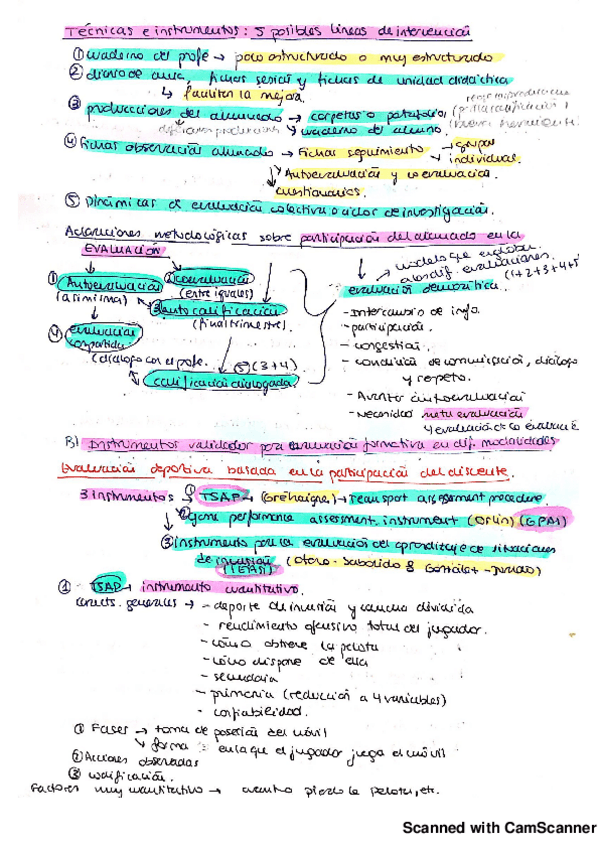 Técnicas e instrumentos: 5 posibles líneas de intervención
① cuaderno del profe → poco estructurado o muy estructurado
② diario de aula, fichas sesión y fichas de unidad didáctica
↳ facilitan la mejora.
③ producciones del alumnado → carpetas o portafolios
→ cuaderno del alumno.
④ Fichas observación alumnado → Fichas seguimiento → grupal
→ individual.
Autoevaluación y coevaluación
cuestionarios.
⑤ Dinámicas de evaluación colectiva o ciclos de investigación.
Aclaraciones metodológicas sobre participación del alumnado en la
EVALUACIÓN
modelo que engloba
dif. evaluaciones
(1+2+3+4+5)
① Autoevaluación
(a sí misma)
② coevaluación
(entre iguales)
③ autocalificación
(final trimestre)
④ evaluación
compartida
(diálogo con el profe.
⑤ (3+4)
calificación dialogada
evaluación democrática.
- Intercambio de info.
- participación.
- cogestión.
- condición de comunicación, diálogo
y respeto.
- autoevaluación
- Necesidad meta evaluación
y evaluación de la evaluación
B) Instrumentos validados para evaluación formativa en dif. modalidades
Evaluación deportiva basada en la participación del discente.
3 instrumentos → ① TSAP → (Grehaigne) → Teamsport assessment procedure
② game performance assessment instrument (Oslin) (GPAI)
③ instrumento para la evaluación del aprendizaje de situaciones
de invasión (IEASI) (Otero-Saborido & González-Jurado)
① - TSAP → instrumento cuantitativo.
caracts. generales → - deporte de invasión y cancha dividida
- rendimiento ofensivo total del jugador.
- cómo obtiene la pelota
- cómo dispone de ella
- secundaria
- primaria (reducción a 4 variables)
- confiabilidad.
① Fases → toma de posesión del móvil
↳ forma en la que el jugador juega el móvil
② Acciones observadas
③ codificación.
Factores muy cuantitativo → cuanto pierdo la pelota, etc.
Scanned with CamScanner